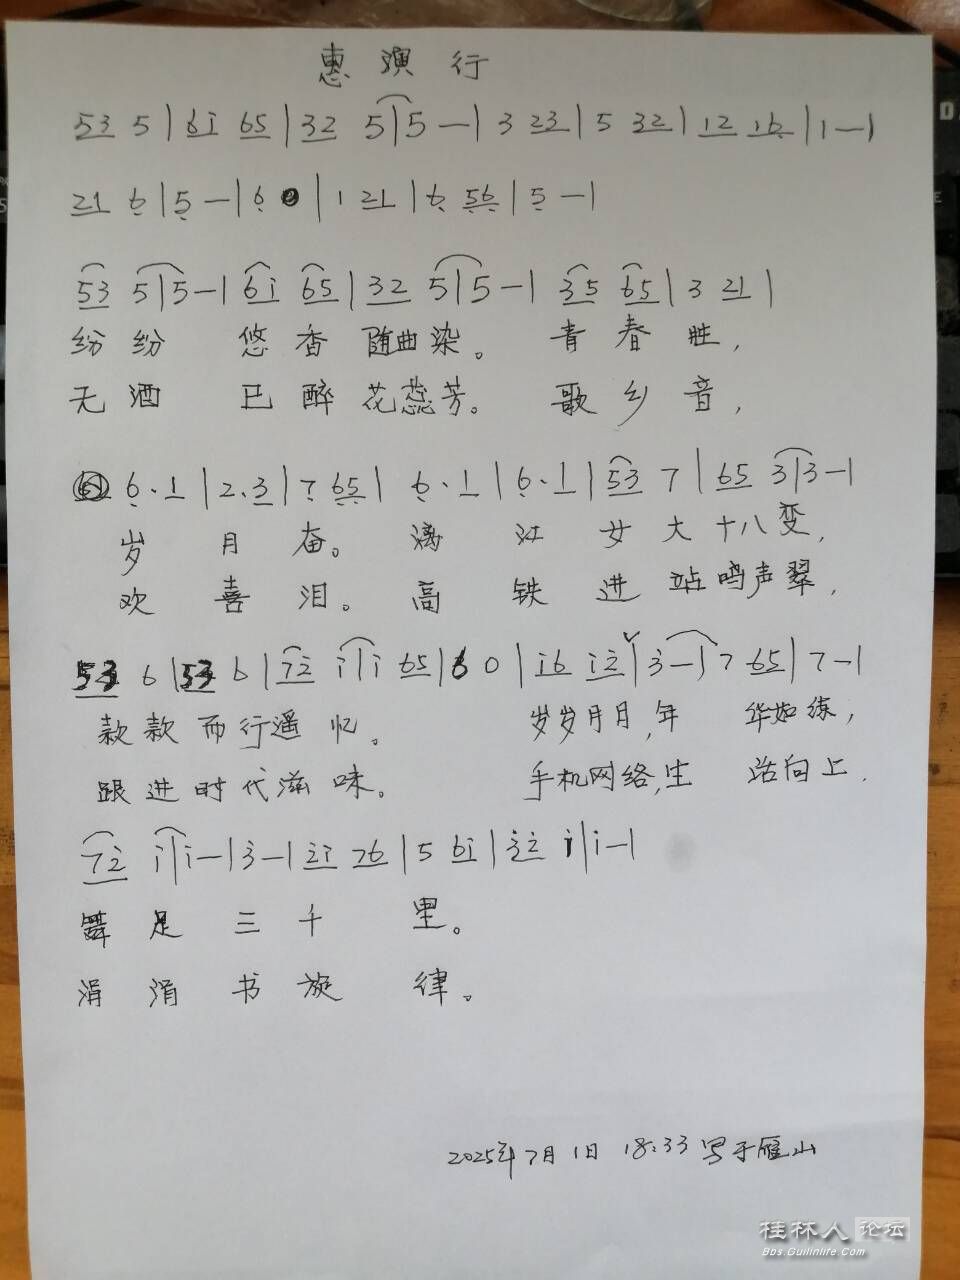 惠演行
53 5 | 6i 65 | 32 5 | 5 — | 3 23 | 5 32 | 12 16 | 1 — |
21 6 | 5 — | 6 | 1 21 | 6 56 | 5 — |
53 5 | 5 — | 6i 65 | 32 5 | 5 — | 35 65 | 3 21 |
纷纷 悠香随曲染。 青春胜,
无酒 已醉花蕊芳。 歌乡音,
6 · 1 | 2 · 3 | 7 65 | 6 · 1 | 6 · 1 | 53 7 | 65 3 | 3 — |
岁月奋。漓江女大十八变,
欢喜泪。高铁进站鸣声翠,
53 6 | 53 6 | 72 i | i 65 | 6 0 | i6 i2 | 3 — | 7 65 | 7 — |
款款而行遥忆。 岁岁月月,年华如练,
跟进时代滋味。 手机网络,生活向上,
72 i | i — | 3 — | 2i 76 | 5 6i | 32 i | i — |
舞足三千里。
涓涓书旋律。
2025年7月1日 18:33 写于雁山
桂林人论坛
Bbs.Guilinlife.Com